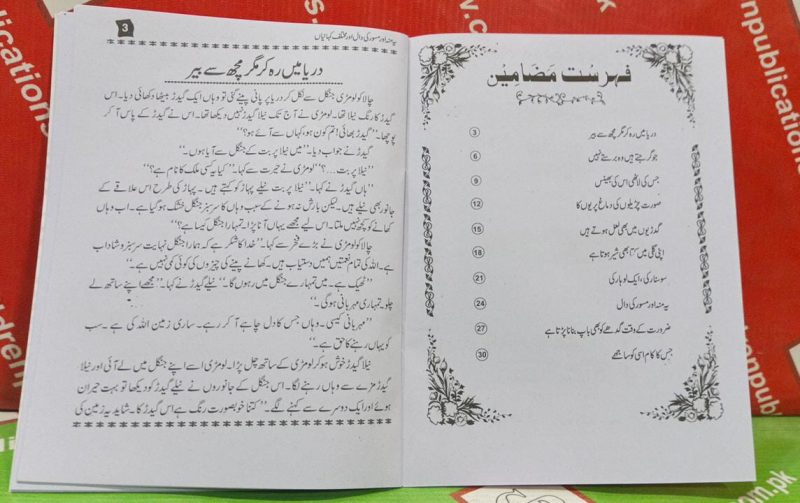 فہرست مضامین
دریا میں رہ کر مگر مچھ سے بیر 3
جو گرجتے ہیں وہ برستے نہیں 6
جس کی لاٹھی اس کی بھینس 9
صورت چڑیلوں کی دماغ پریوں کا 12
گدڑیوں میں بھی لعل ہوتے ہیں 15
اپنی گلی میں کتا بھی شیر ہوتا ہے 18
سو سنار کی، ایک لوہار کی 21
یہ منہ اور مسور کی دال 24
ضرورت کے وقت گدھے کو بھی باپ بنانا پڑتا ہے 27
جس کا کام اسی کو ساجھے 30
یہ منہ اور مسور کی دال اور مختلف کہانیاں
3
دریا میں رہ کر مگر مچھ سے بیر
چالاکو لومڑی جنگل سے نکل کر دریا پر پانی پینے گئی تو وہاں ایک گیدڑ بیٹھا دکھائی دیا۔ اس
گیدڑ کا رنگ نیلا تھا۔ لومڑی نے آج تک نیلا گیدڑ نہیں دیکھا تھا۔ اس نے گیدڑ کے پاس آ کر
پوچھا۔ ”گیدڑ بھائی! تم کون ہو، کہاں سے آئے ہو؟“
گیدڑ نے جواب دیا۔ ”میں نیلا پربت کے جنگل سے آیا ہوں۔“
”نیلا پربت...؟“ لومڑی نے حیرت سے کہا۔ ”کیا یہ کسی ملک کا نام ہے؟“
”ہاں گیدڑ نے کہا۔ ”نیلا پربت نیلے پہاڑ کو کہتے ہیں۔ پہاڑ کی طرح اس علاقے کے
جانور بھی نیلے ہیں۔ لیکن بارش نہ ہونے کے سبب وہاں کا سرسبز جنگل خشک ہو گیا ہے۔ اب وہاں
کھانے کو کچھ نہیں ملتا۔ اس لیے مجھے یہاں آنا پڑا۔ تمہارا جنگل کیسا ہے؟“
چالاکو لومڑی نے بڑے فخر سے کہا۔ ”خدا کا شکر ہے کہ ہمارا جنگل نہایت سرسبز و شاداب
ہے۔ اللہ کی تمام نعمتیں ہمیں دستیاب ہیں۔ کھانے پینے کی چیزوں کی کوئی کمی نہیں ہے۔“
”ٹھیک ہے۔ میں تمہارے جنگل میں رہوں گا۔“ نیلے گیدڑ نے کہا۔ ”مجھے اپنے ساتھ لے
چلو۔ تمہاری مہربانی ہو گی۔“
”مہربانی کیسی۔ وہاں جس کا دل چاہے آ کر رہے۔ ساری زمین اللہ کی ہے۔ سب
کو یہاں رہنے کا حق ہے۔“
نیلا گیدڑ خوش ہو کر لومڑی کے ساتھ چل پڑا۔ لومڑی اسے اپنے جنگل میں لے آئی اور نیلا
گیدڑ مزے سے وہاں رہنے لگا۔ اس جنگل کے جانوروں نے نیلے گیدڑ کو دیکھا تو بہت حیران
ہوئے اور ایک دوسرے سے کہنے لگے۔ ”کتنا خوبصورت رنگ ہے اس گیدڑ کا۔ شاید یہ زمین کی
publications
npublications
childrenpu
.com.pk